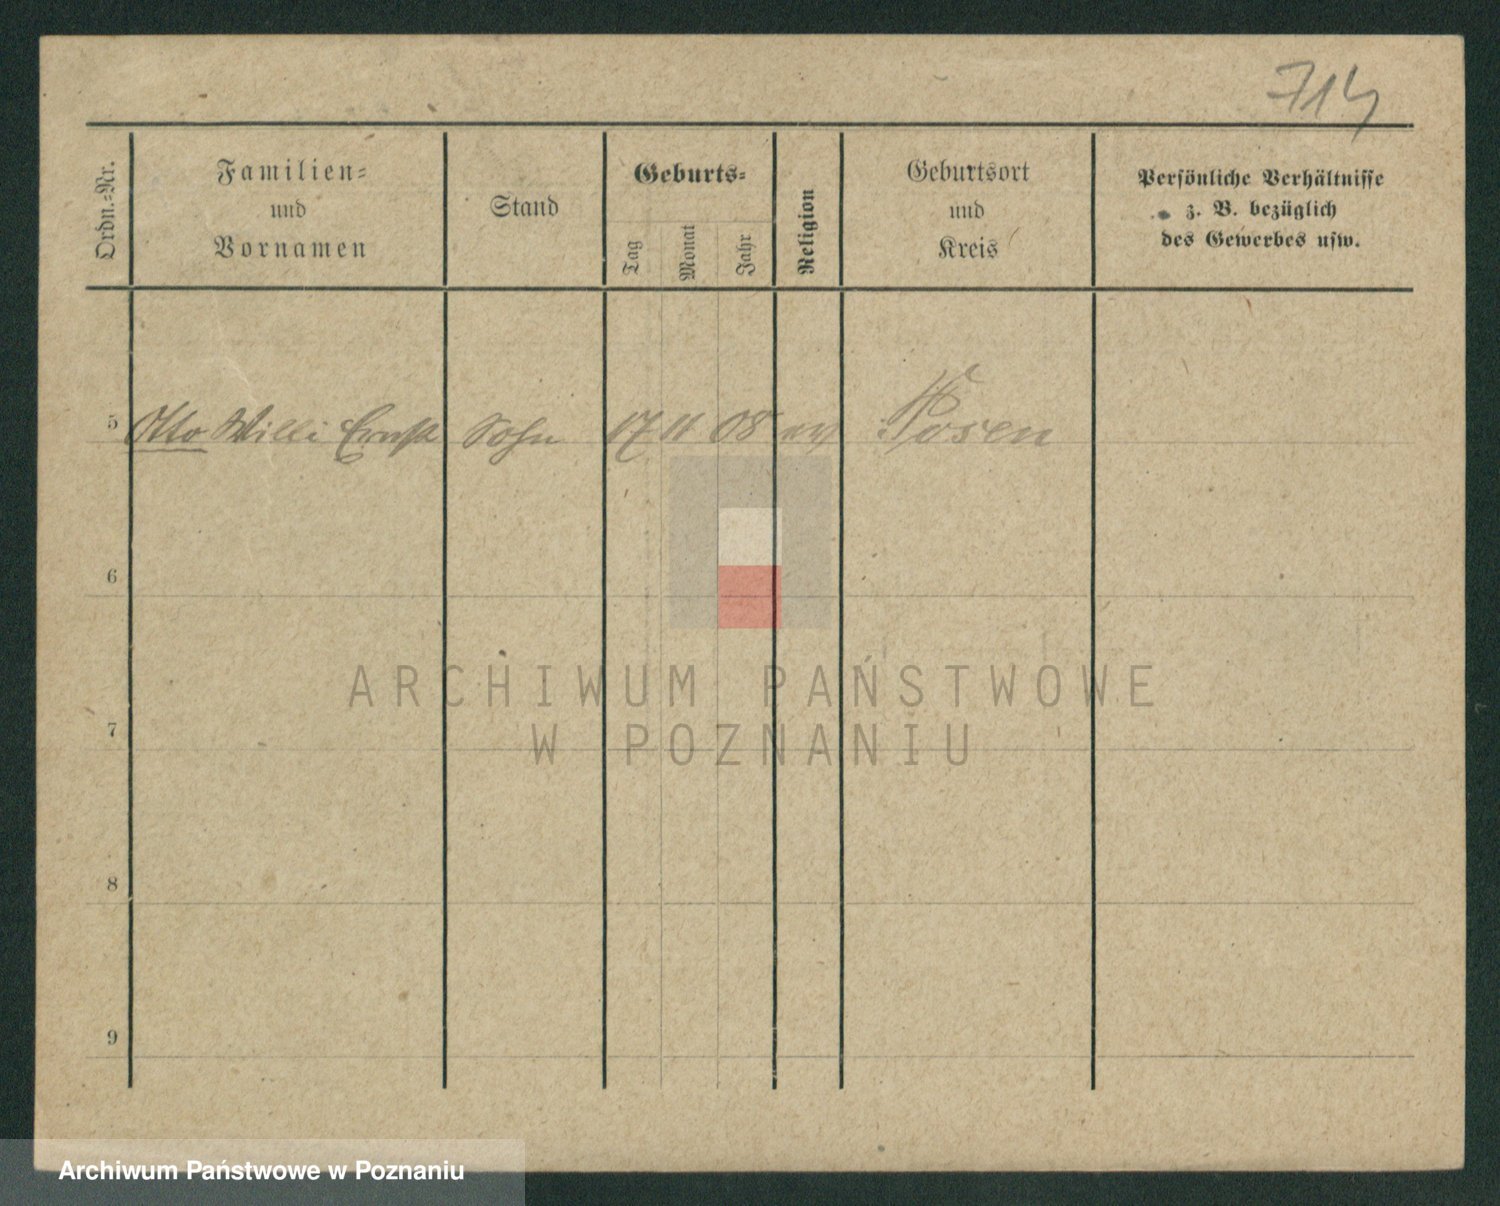 714
Ordn.-Nr.
Familien-
und
Vornamen
Stand
Geburts-
Tag
Monat
Jahr
Religion
Geburtsort
und
Kreis
Persönliche Verhältnisse
z. B. bezüglich
des Gewerbes usw.
5 Otto Willi Ernst Sohn 17 11 08 ev Posen
6
7
8
9
ARCHIWUM PAŃSTWOWE
W POZNANIU
Archiwum Państwowe w Poznaniu